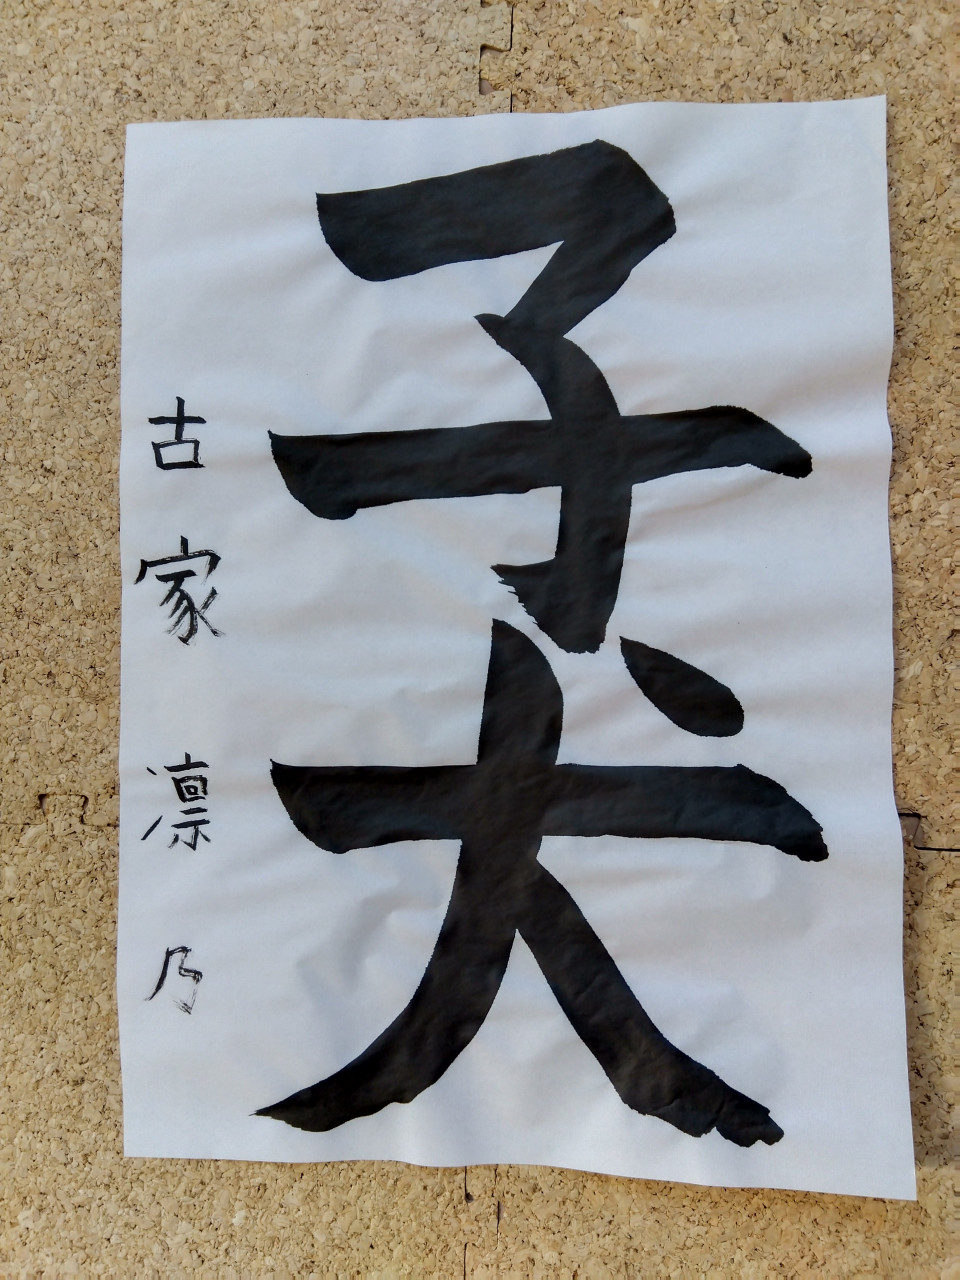 子犬
古家凛乃